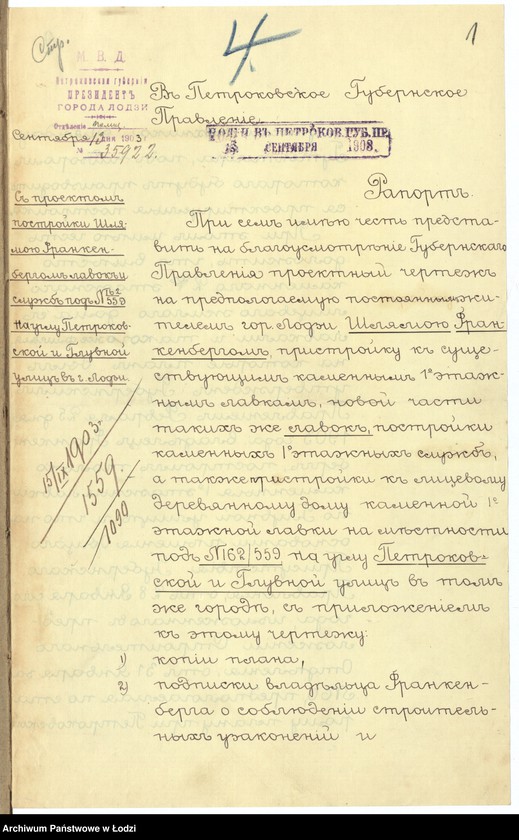 Стр.
4
1
М. В. Д.
Петроковской губерніи
ПРЕЗИДЕНТЪ
ГОРОДА ЛОДЗИ
Отдѣленіе
Сентября 12 дня 1903 г.
№ 35922.
Въ Петроковское Губернское
Правленіе
ПЕТРОКОВ. ГУБ. ПР.
13 СЕНТЯБРЯ 1903.
Рапортъ.
Съ проектомъ
постройки Шля-
мою Франкен-
бергомъ лавокъ и
службъ подъ № 62/559
на углу Петроков-
ской и Глувной
улицъ въ г. Лодзи.
15/IX 1903 г.
1559
1090
При семъ имѣю честь предста-
вить на благоусмотрѣніе Губернскаго
Правленія проектный чертежъ
на предполагаемую постояннымъ жи-
телемъ гор. Лодзи Шлямою Фран-
кенбергомъ, пристройку къ суще-
ствующимъ каменнымъ 1º этаж-
нымъ лавкамъ, новой части
такихъ же лавокъ, постройки
каменныхъ 1º этажныхъ службъ,
а также пристройки къ лицевому
деревянному дому каменной 1º
этажной лавки на мѣстности
подъ № 62/559 на углу Петроков-
ской и Глувной улицъ въ томъ
же городѣ, съ приложеніемъ
къ этому чертежу:
1) копіи плана,
2) подписки владѣльца Франкен-
берга о соблюденіи строитель-
ныхъ узаконеній и
Archiwum Państwowe w Łodzi